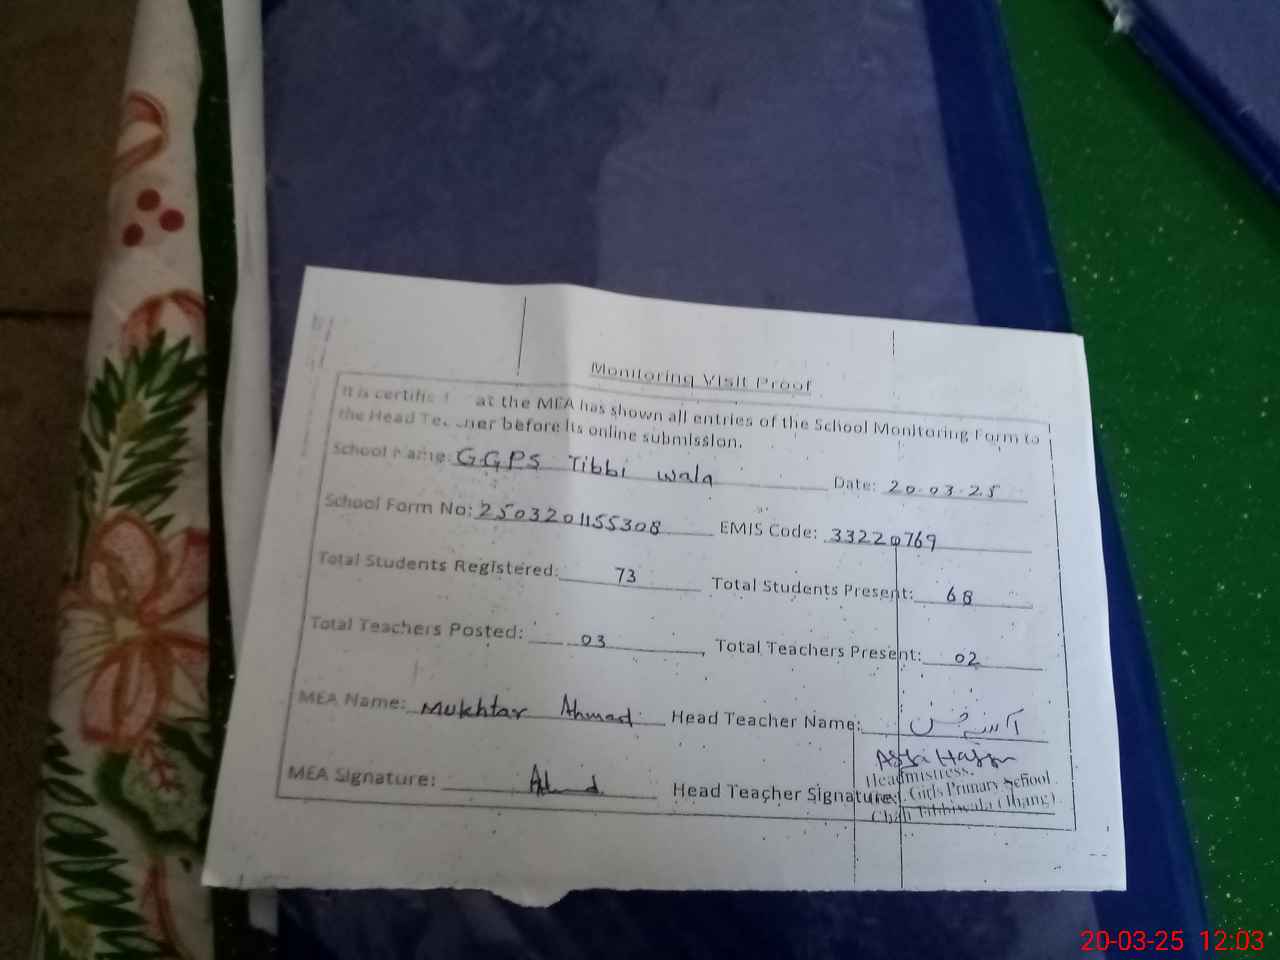 Monitoring Visit Proof
It is certified at the MEA has shown all entries of the School Monitoring Form to
the Head Teacher before its online submission.
School Name: GGPS Tibbi wala Date: 20.03.25
School Form No: 2503201155308 EMIS Code: 33220769
Total Students Registered: 73 Total Students Present: 68
Total Teachers Posted: 03, Total Teachers Present: 02
MEA Name: Mukhtar Ahmad Head Teacher Name:
Headmistress,
MEA Signature: Head Teacher Signature: Girls Primary School
Chah Tibbiwala (Jhang)
20-03-25 12:03